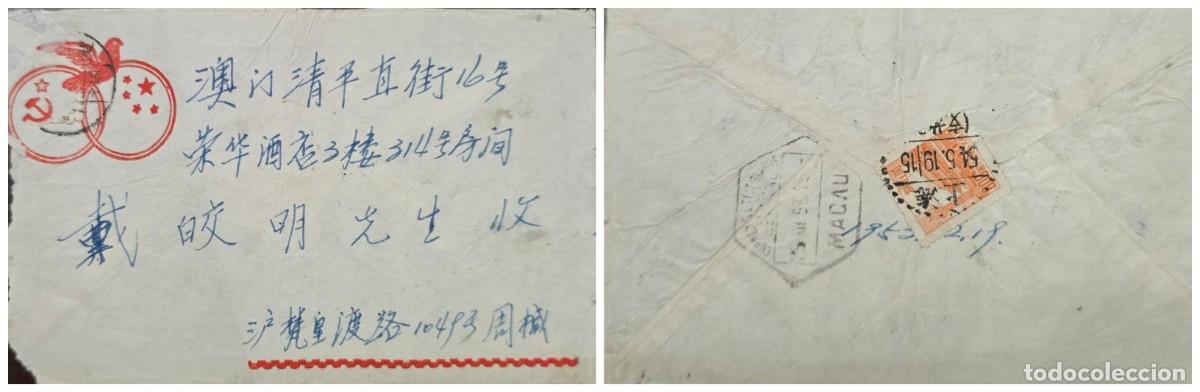 澳门清平直街16号
荣华酒店3楼314号房间
戴皎明先生收
沪梵皇渡路1049号周械
MACAU
上海
54.5.19/15
1953.2.19.
todocoleccion